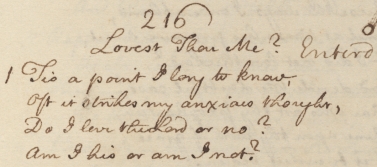 216
Lovest Thou Me? Enterd
1 Tis a point I long to know,
Oft it strikes my anxious thought,
Do I love the Lord or no?
Am I his or am I not?